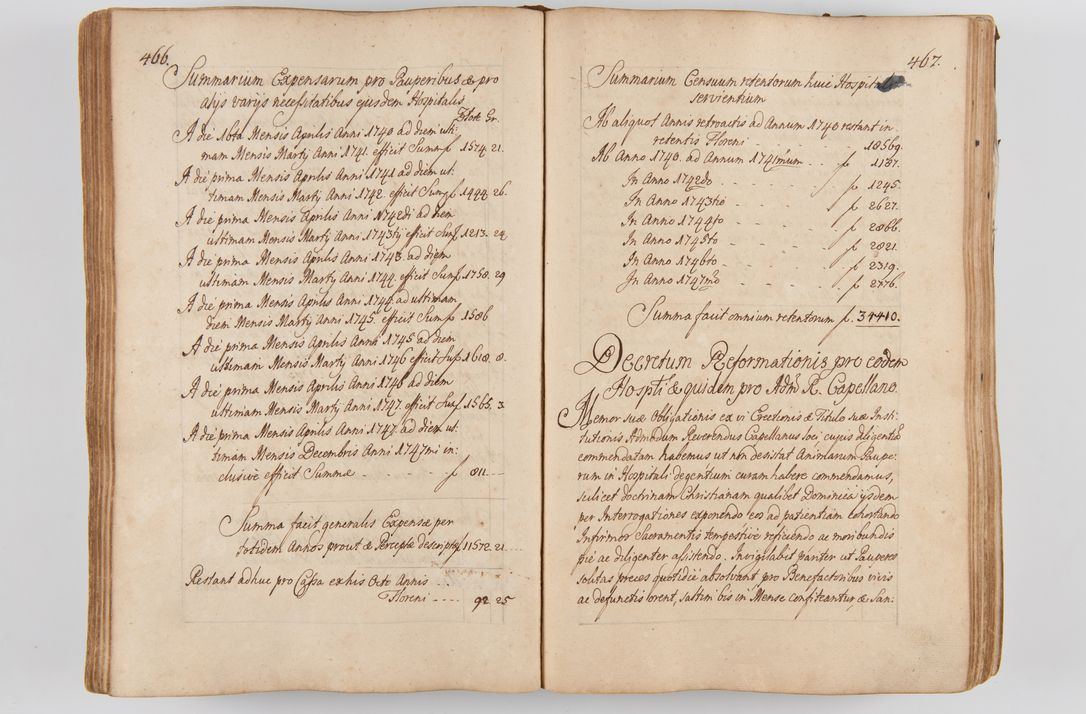 466.
Summarium Expensarum pro Pauperibus & pro
alijs varijs necessitatibus ejusdem Hospitalis
Flore Gr.
A die 10ma Mensis Aprilis Anni 1740 ad diem ulti:
mam Mensis Martij Anni 1741. efficit Sum f 1574. 21.
A die prima Mensis Aprilis Anni 1741 ad diem ul:
timam Mensis Martij Anni 1742. efficit Sum f. 1444. 26.
A die prima Mensis Aprilis Anni 1742di ad diem
ultimam Mensis Martij Anni 1743tij efficit Sum f 1213. 29
A die prima Mensis Aprilis Anni 1743. ad diem
ultimam Mensis Martij Anni 1744. efficit Sum f. 1758. 29
A die prima Mensis Aprilis Anni 1744. ad ultimam
diem Mensis Martij Anni 1745. efficit Sum f. 1586
A die prima Mensis Aprilis Anni 1745 ad diem
ultimam Mensis Martij Anni 1746 efficit Sum f. 1618. 8.
A die prima Mensis Aprilis Anni 1746 ad diem
ultimam Mensis Martij Anni 1747. efficit Sum f. 1565. 3
A die prima Mensis Aprilis Anni 1747. ad diem ul:
timam Mensis Decembris Anni 1747mi in:
clusivè efficit Summæ - - - f 811. —
Summa facit generalis Expensæ per
totidem Annos prout & Perceptæ descriptæ f 11572. 21.
Restant adhuc pro Cassa ex his Octo Annis
Floreni - - - - 92 25
467.
Summarium Censuum retentorum huic Hospitali
servientium
Ab aliquot Annis retroactis ad Annum 1740 restant in
retentis Floreni - - - 18569.
Ab Anno 1740. ad Annum 1741mum - - f 1187.
In Anno 1742do - - - - f 1245.
In Anno 1743tio - - - f 2627.
In Anno 1744to - - - f 2866.
In Anno 1745to - - - f 2821.
In Anno 1746to - - - f 2319.
In Anno 1747mo - - - f 2776.
Summa facit omnium retentorum f. 34410.
Decretum Reformationis pro eodem
Hospti & quidem pro Adm R. Capellano.
Memor suæ Obligationis ex vi Erectionis & Titulo suæ Insti:
tutionis Admodum Reverendus Capellanus loci cujus diligentiam
commendatam habemus ut non desistat Animarum Paupe:
rum in Hospitali degentium curam habere commendamus,
scilicet doctrinam Christianam qualibet Dominica ijsdem
per Interrogationes exponendo eos ad patientiam cohortando
Infirmos Sacramentis tempestivè reficiendo ac moribundis
piè ac diligenter assistendo. Invigilabit pariter ut Pauperes
solitas preces quotidiè absolvant pro Benefactoribus vivis
ac defunctis orent, saltim bis in Mense confiteantur, & San: